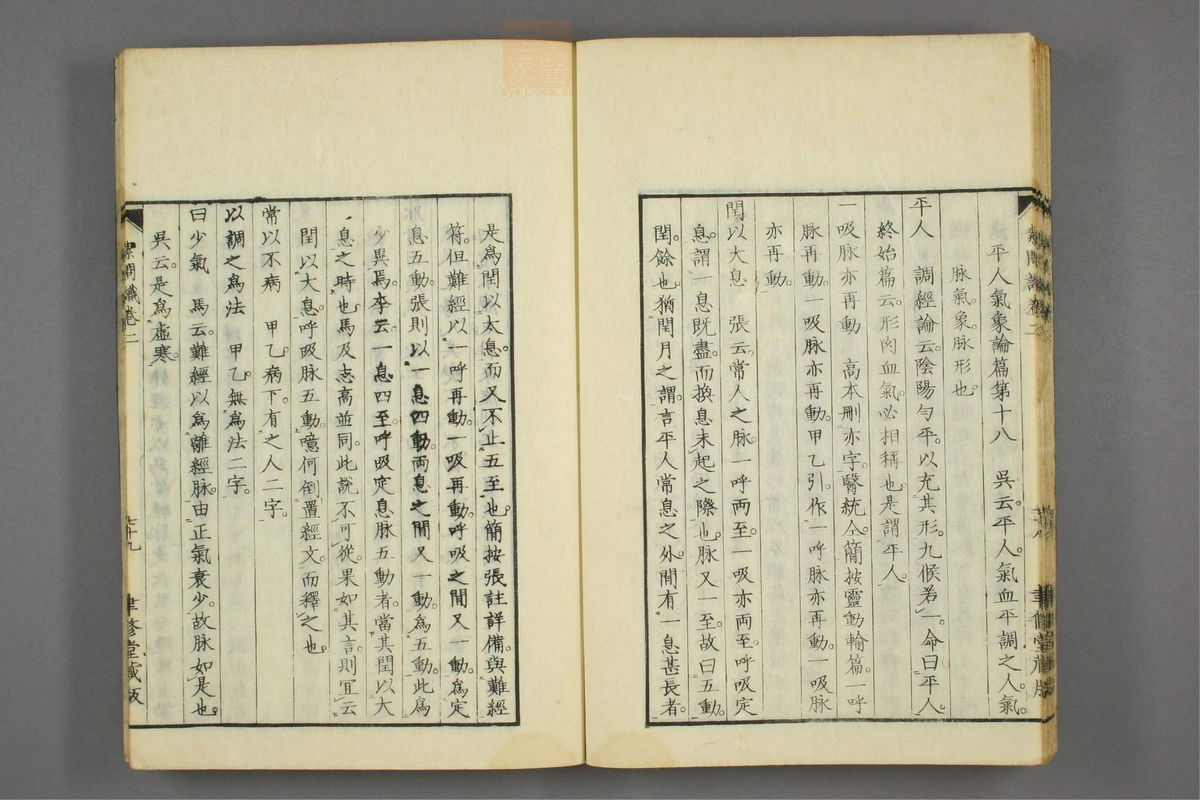 平人氣象論篇第十八　吳云。平人。氣血平調之人。氣。
脉氣。象。脉形也。
平人　調經論云。陰陽勻平。以充其形。九候若一。命曰平人。
終始篇云。形肉血氣。必相稱也。是謂平人。
一吸脉亦再動　高本刪亦字。醫統仝。簡按靈動輸篇。一呼
脉再動。一吸脉亦再動。甲乙引。作一呼脉亦再動。一吸脉
亦再動。
閏以大息　張云。常人之脉。一呼兩至。一吸亦兩至。呼吸定
息。謂一息既盡。而換息未起之際也。脉又一至。故曰五動。
閏餘也。猶閏月之謂。言平人常息之外。間有一息甚長者。
素問識卷二
聿修堂藏版
是爲閏以太息。而又不止五至也。簡按張註詳備。與難經
符。但難經以一呼再動。一吸再動。呼吸之間又一動。爲定
息五動。張則以一息四動。兩息之間又一動。爲五動。此爲
少異焉。李云。一息四至。呼吸定息脉五動者。當其閏以大
息之時也。馬及志高並同。此說不可從。果如其言。則宜云
閏以大息。呼吸脉五動。噫何倒置經文。而釋之也。
常以不病　甲乙病下。有之人二字。
以調之爲法　甲乙。無爲法二字。
曰少氣　馬云。難經以爲離經脉。由正氣衰少。故脉如是也。
吳云。是爲虛寒。
素問識卷二
七十九
聿修堂藏版